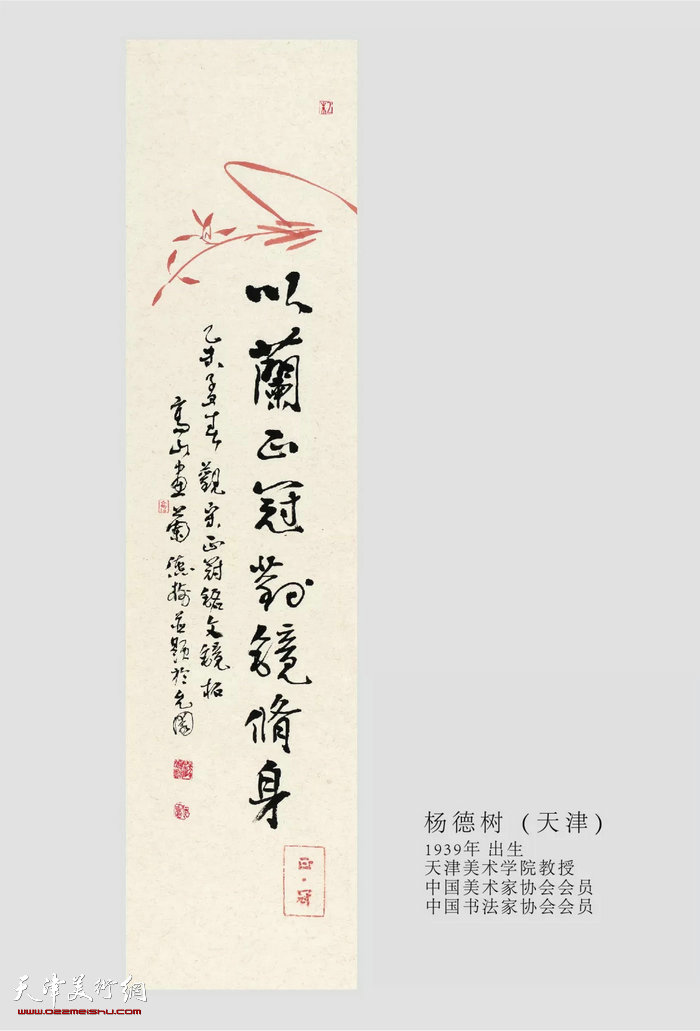 以蘭正冠對鏡脩身
乙未孟春觀宋正冠銘文鏡拓
高山畫蘭德樹並題於允園
正·冠
杨德树（天津）
1939年 出生
天津美术学院教授
中国美术家协会会员
中国书法家协会会员
天津美術網
www.022meishu.com